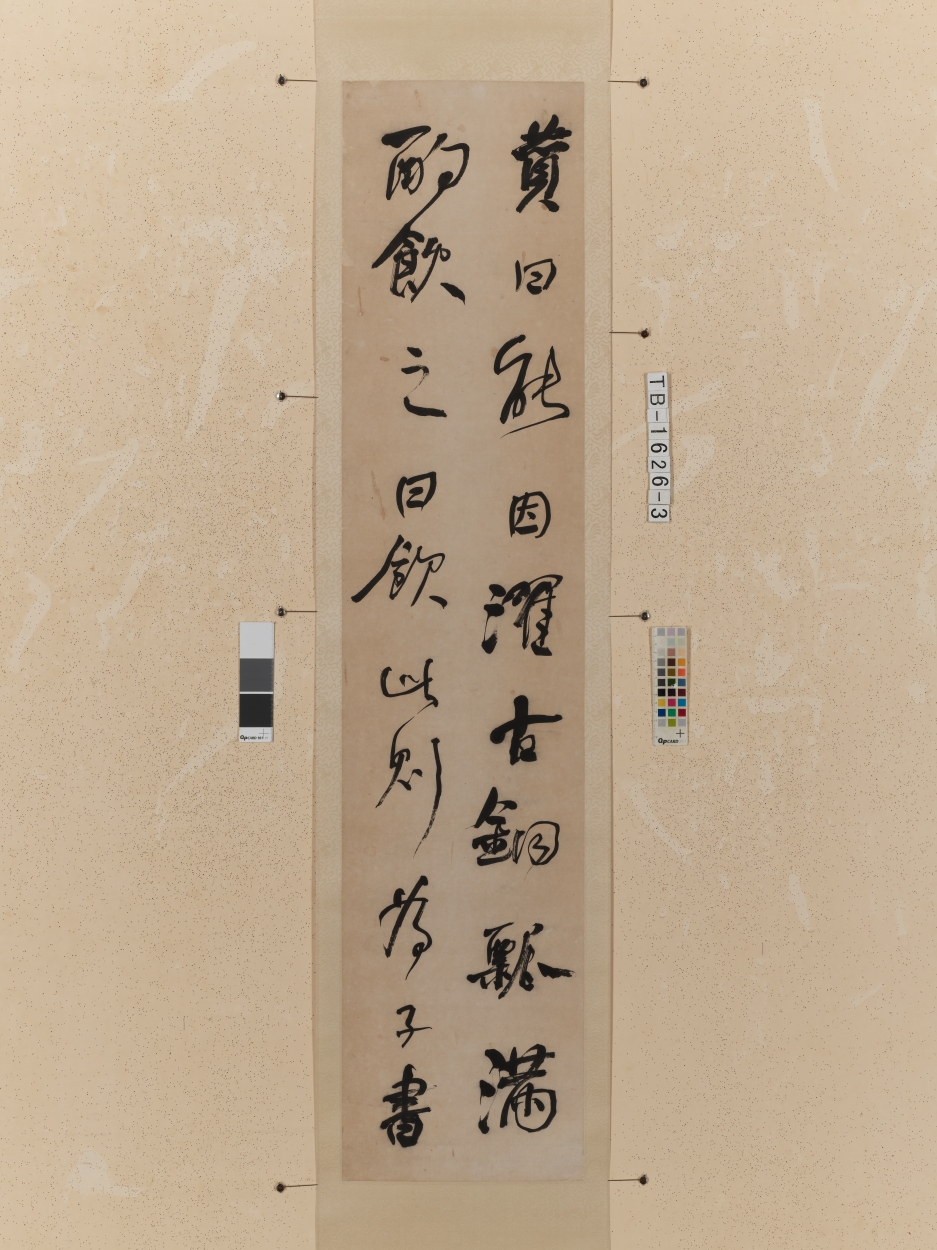 蕢曰能因濯古銅瓢滿
酌飲之曰飲此則為子書
TB-1626-3